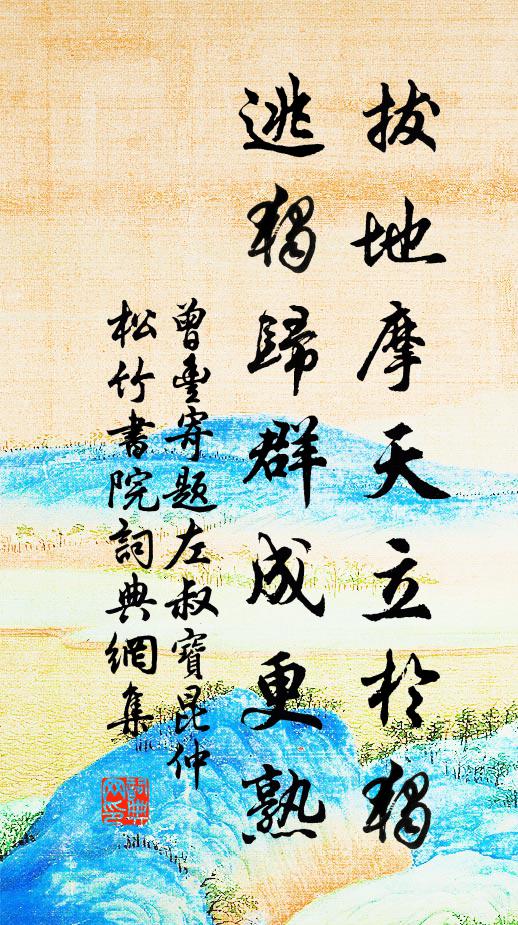 拔地摩天立於獨
逃獨歸群成更熟
曾豐寄題左叔寶昆仲
松竹書院詞典網集